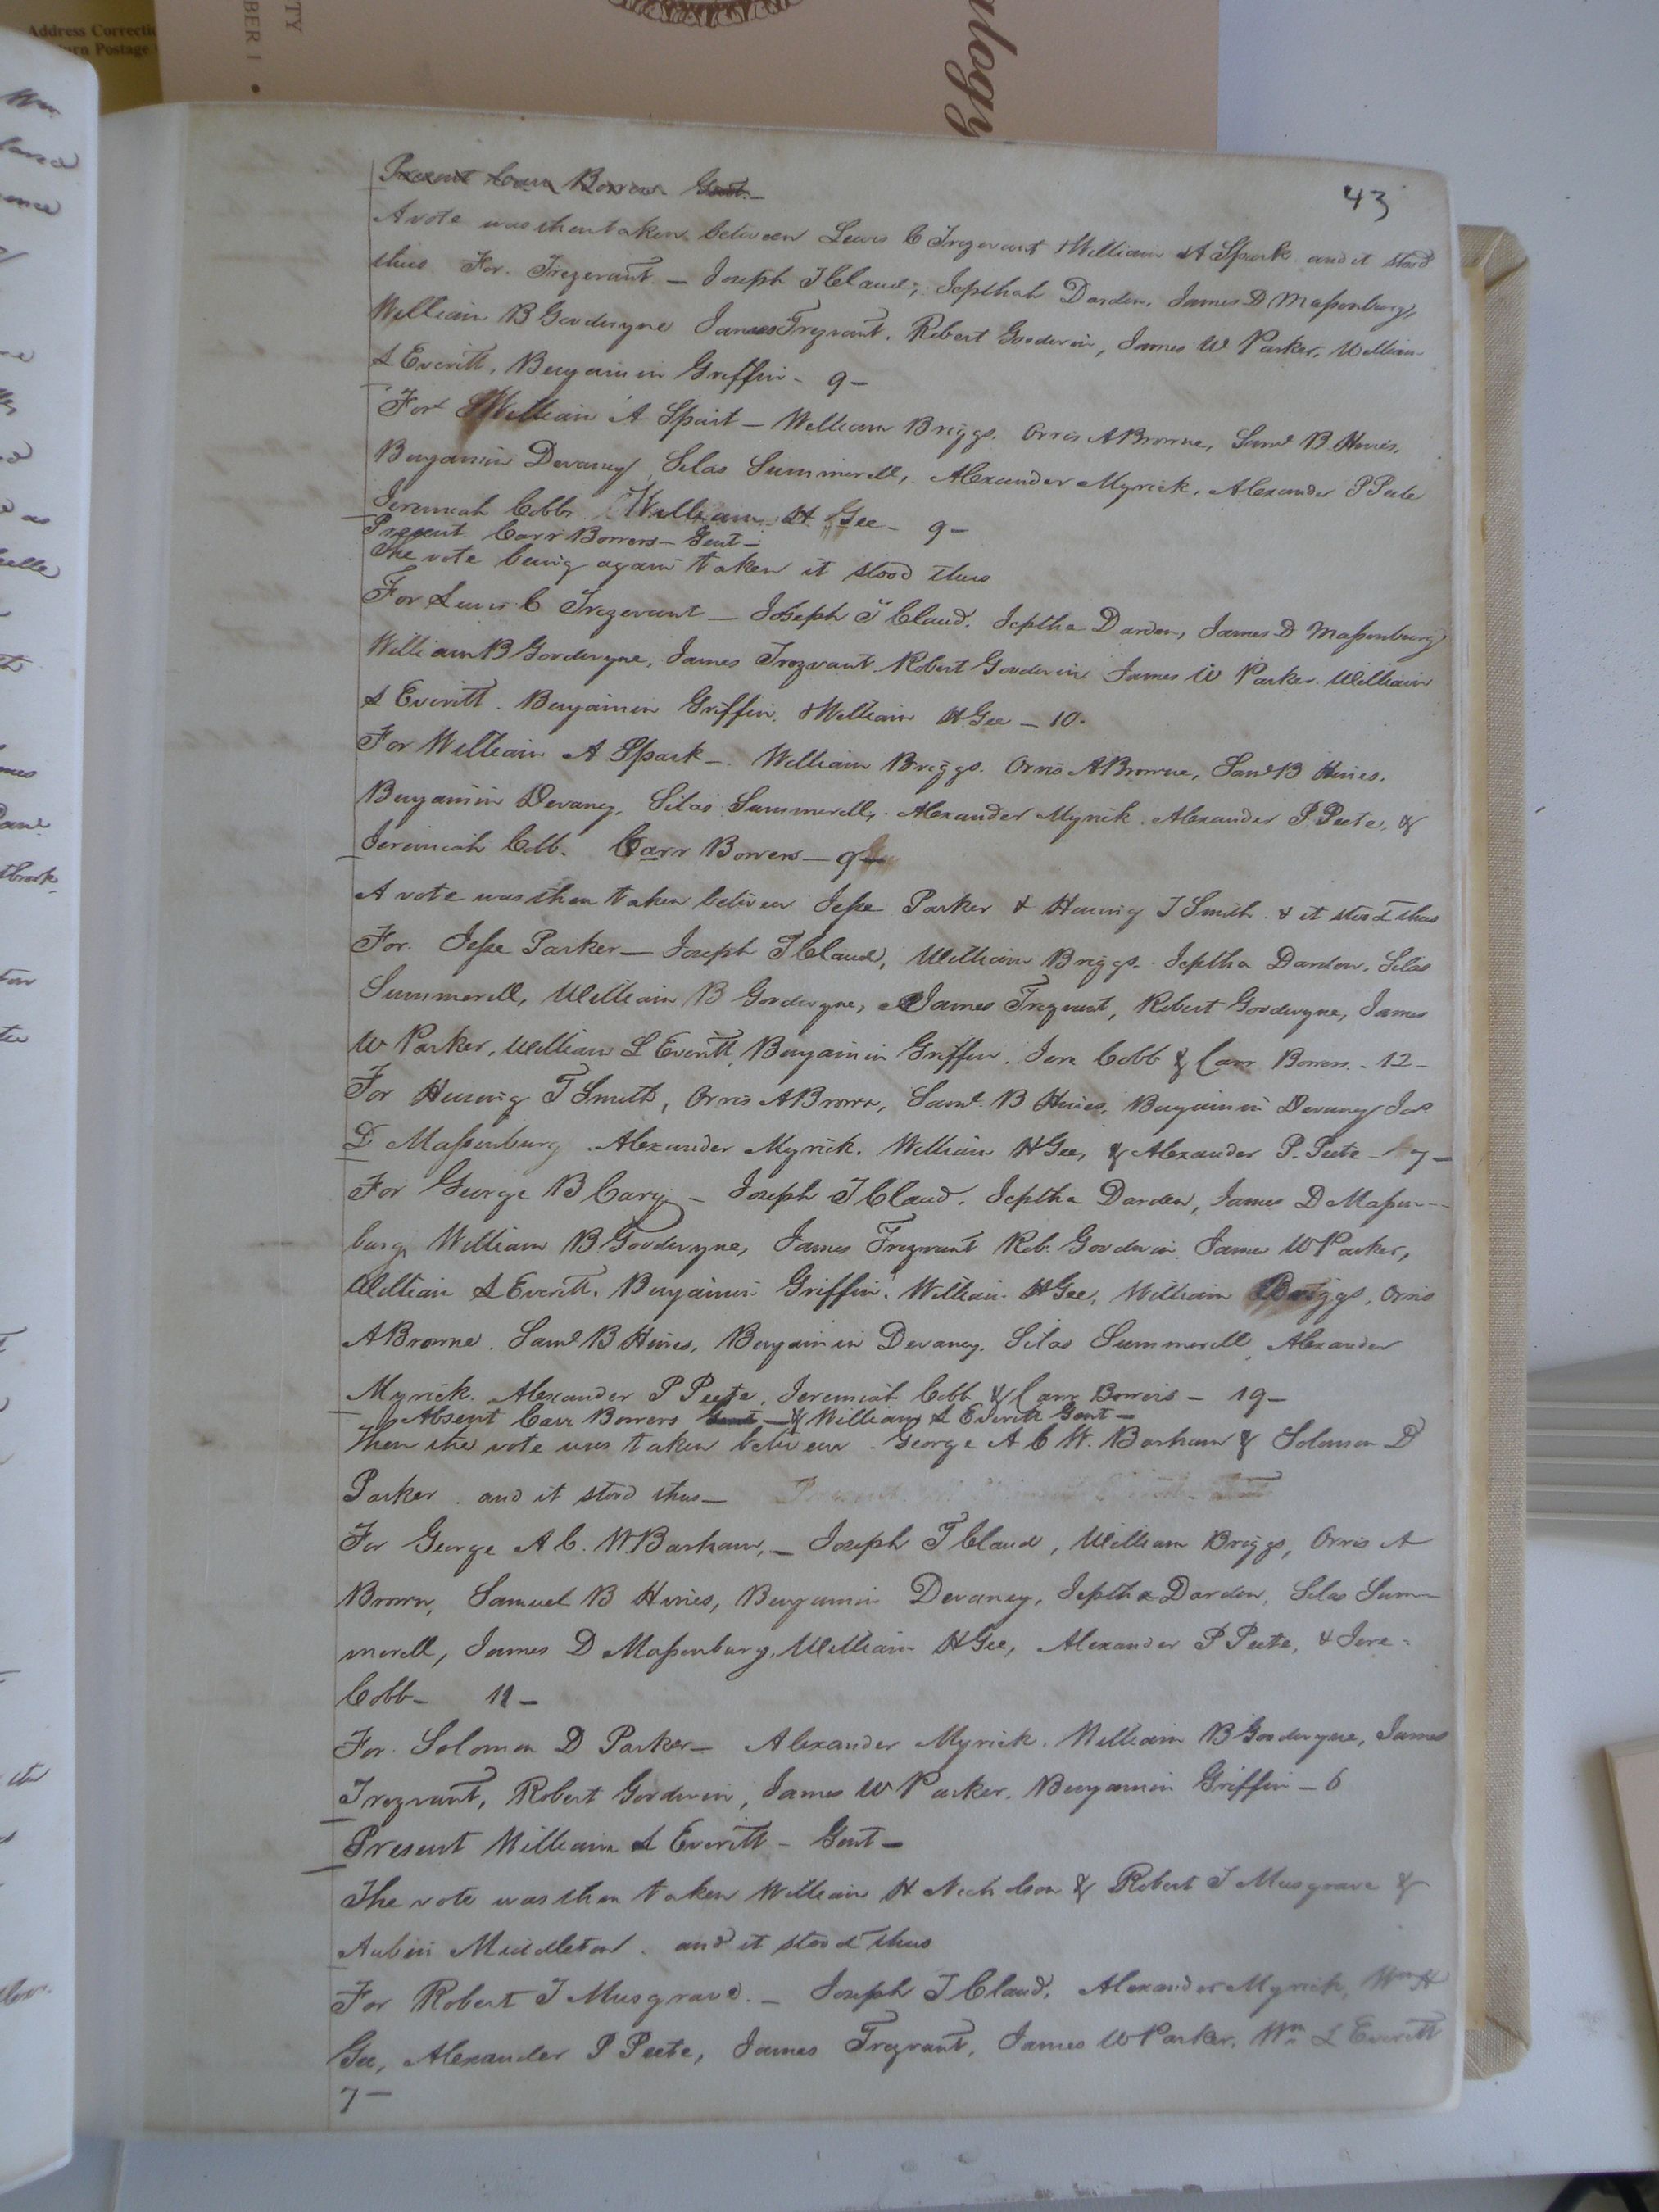 Address Correctio
urn Postage
BER 1 •
TY
ulogy
43
Present Carr Bowers Gent.—
A vote was then taken between Lewis C Trezevant & William A Spark and it stood
thus For Trezevant — Joseph T Claud, Jepthah Darden, James D Maßenburg,
William B Goodwyne James Trezvant, Robert Goodwin, James W Parker, William
L Everitt, Benjamin Griffin — 9 —
For William A Spark — William Briggs, Orris A Browne, Saml B Hines,
Benjamin Devaney Silas Summerell, Alexander Myrick, Alexander P Peete
Jeremiah Cobb William H Gee — 9 —
Present Carr Bowers — Gent —
The vote being again taken it stood thus
For Lewis C Trezevant — Joseph T Claud, Jeptha Darden, James D Maßenburg
William B Goodwyne, James Trezvant Robert Goodwin James W Parker William
L Everitt. Benjamin Griffin, & William H Gee — 10.
For William A Spark — William Briggs, Orris A Browne, Saml B Hines,
Benjamin Devaney, Silas Summerell, Alexander Myrick, Alexander P. Peete, &
Jeremiah Cobb. Carr Bowers — 9
A vote was then taken between Jeße Parker & Hening T Smith & it stood thus
For Jeße Parker — Joseph T Claud, William Briggs. Jeptha Darden, Silas
Summerell, William B Goodwyne, James Trezvant, Robert Goodwyne, James
W Parker, William L Everitt, Benjamin Griffin, Jere Cobb & Carr Bowers. - 12 -
For Hening T Smith, Orris A Brown, Saml B Hines, Benjamin Devaney Jas
D Maßenburg Alexander Myrick, William H Gee, & Alexander P. Peete — 7 —
For George B Cary — Joseph T Claud, Jeptha Darden, James D Maßen-
burg William B Goodwyne, James Trezvant Rob. Goodwin James W Parker,
William L Everitt, Benjamin Griffin, William H Gee, William Briggs, Orris
A Browne, Saml B Hines, Benjamin Devaney, Silas Summerell, Alexander
Myrick, Alexander P Peete, Jeremiah Cobb & Carr Bowers — 19 —
Absent Carr Bowers Gent — & William L Everitt Gent —
Then the vote was taken between George A C W. Barham & Solomon D
Parker and it stood thus —
For George A C. W Barham, — Joseph T Claud, William Briggs, Orris A
Brown, Samuel B Hines, Benjamin Devaney, Jeptha Darden, Silas Sum-
merell, James D Maßenburg, William H Gee, Alexander P Peete, & Jere
Cobb — 11 —
For Solomon D Parker — Alexander Myrick, William B Goodwyne, James
Trezvant, Robert Goodwin, James W Parker, Benjamin Griffin — 6
Present William L Everitt — Gent —
The vote was then taken William H Nicholson & Robert T Musgrave &
Aubin Middleton and it stood thus
For Robert T Musgrave — Joseph T Claud, Alexander Myrick, Wm H
Gee, Alexander P Peete, James Trezvant, James W Parker, Wm L Everitt
7 —